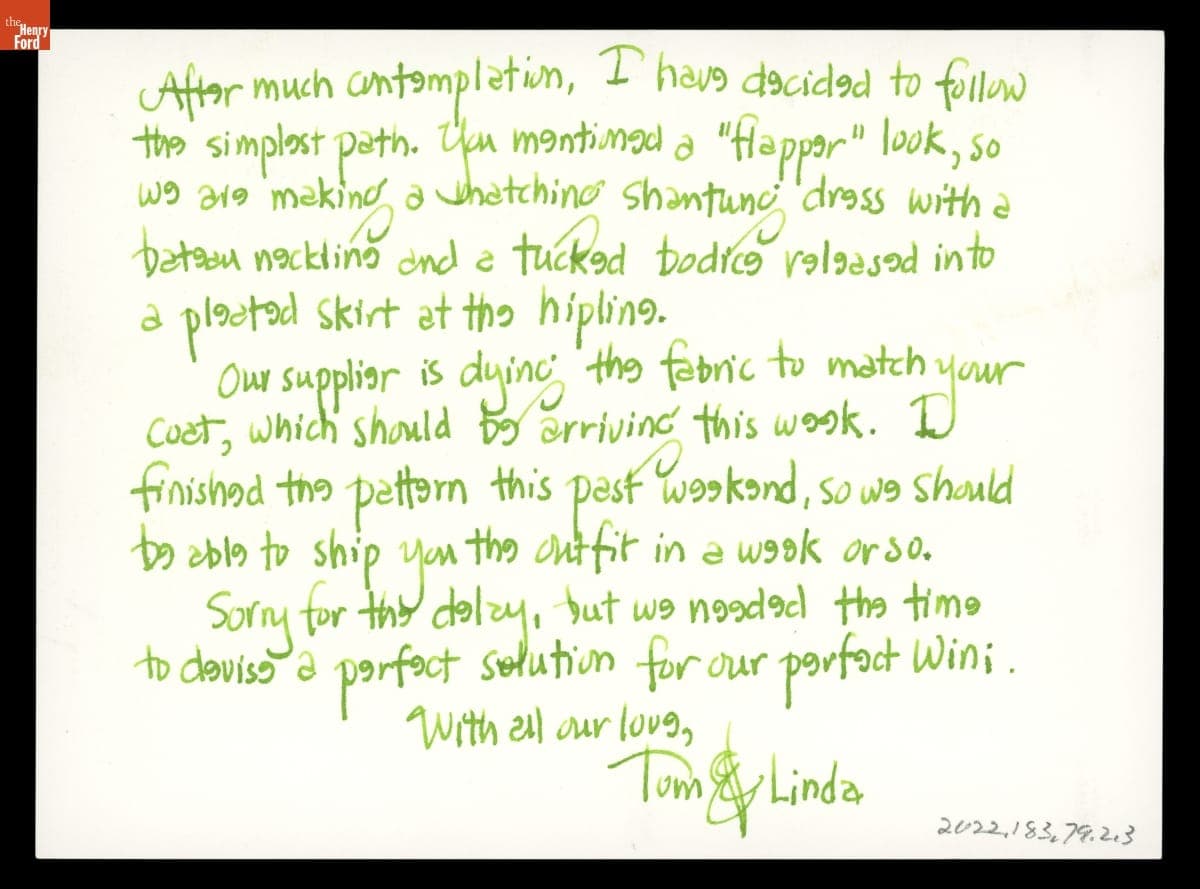 the
Henry
Ford
After much contemplation, I have decided to follow
the simplest path. You mentioned a "flapper" look, so
we are making a matching shantung dress with a
bateau neckline and a tucked bodice released into
a pleated skirt at the hipline.
Our supplier is dying the fabric to match your
coat, which should be arriving this week. I
finished the pattern this past weekend, so we should
be able to ship you the outfit in a week or so.
Sorry for the delay, but we needed the time
to devise a perfect solution for our perfect Wini.
With all our love,
Tom & Linda
2022.183.79.2.3